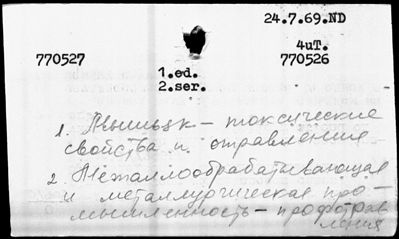 24.7.69.ND
4uT.
770527
770526
1.ed.
2.ser.
1. Мышьяк - токсические
свойства и отравления
2. Металлообрабатывающая
и металлургическая про-
мышленность - профотрав
ления